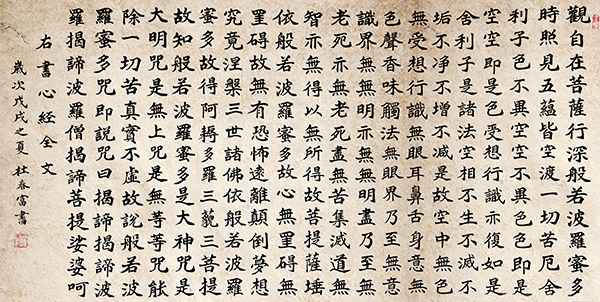 觀自在菩薩行深般若波羅蜜多
時照見五蘊皆空渡一切苦厄舍
利子色不異空空不異色色即是
空空即是色受想行識亦復如是
舍利子是諸法空相不生不滅不
垢不淨不增不減是故空中無色
無受想行識無眼耳鼻舌身意無
色聲香味觸法無眼界乃至無意
識界無無明亦無無明盡乃至無
老死亦無老死盡無苦集滅道無
智亦無得以無所得故菩提薩埵
依般若波羅蜜多故心無罣礙無
罣礙故無有恐怖遠離顛倒夢想
究竟涅槃三世諸佛依般若波羅
蜜多故得阿耨多羅三藐三菩提
故知般若波羅蜜多是大神咒是
大明咒是無上咒是無等等咒能
除一切苦真實不虛故說般若波
羅蜜多咒即說咒曰揭諦揭諦波
羅揭諦波羅僧揭諦菩提裟婆呵
右書心經全文
歲次戊戌之夏杜春富書